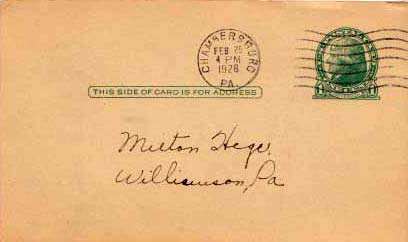 CHAMBERSBURG
FEB 25
4 PM
1926
PA.
THIS SIDE OF CARD IS FOR ADDRESS
1 1
Milton Hege,
Williamson, Pa